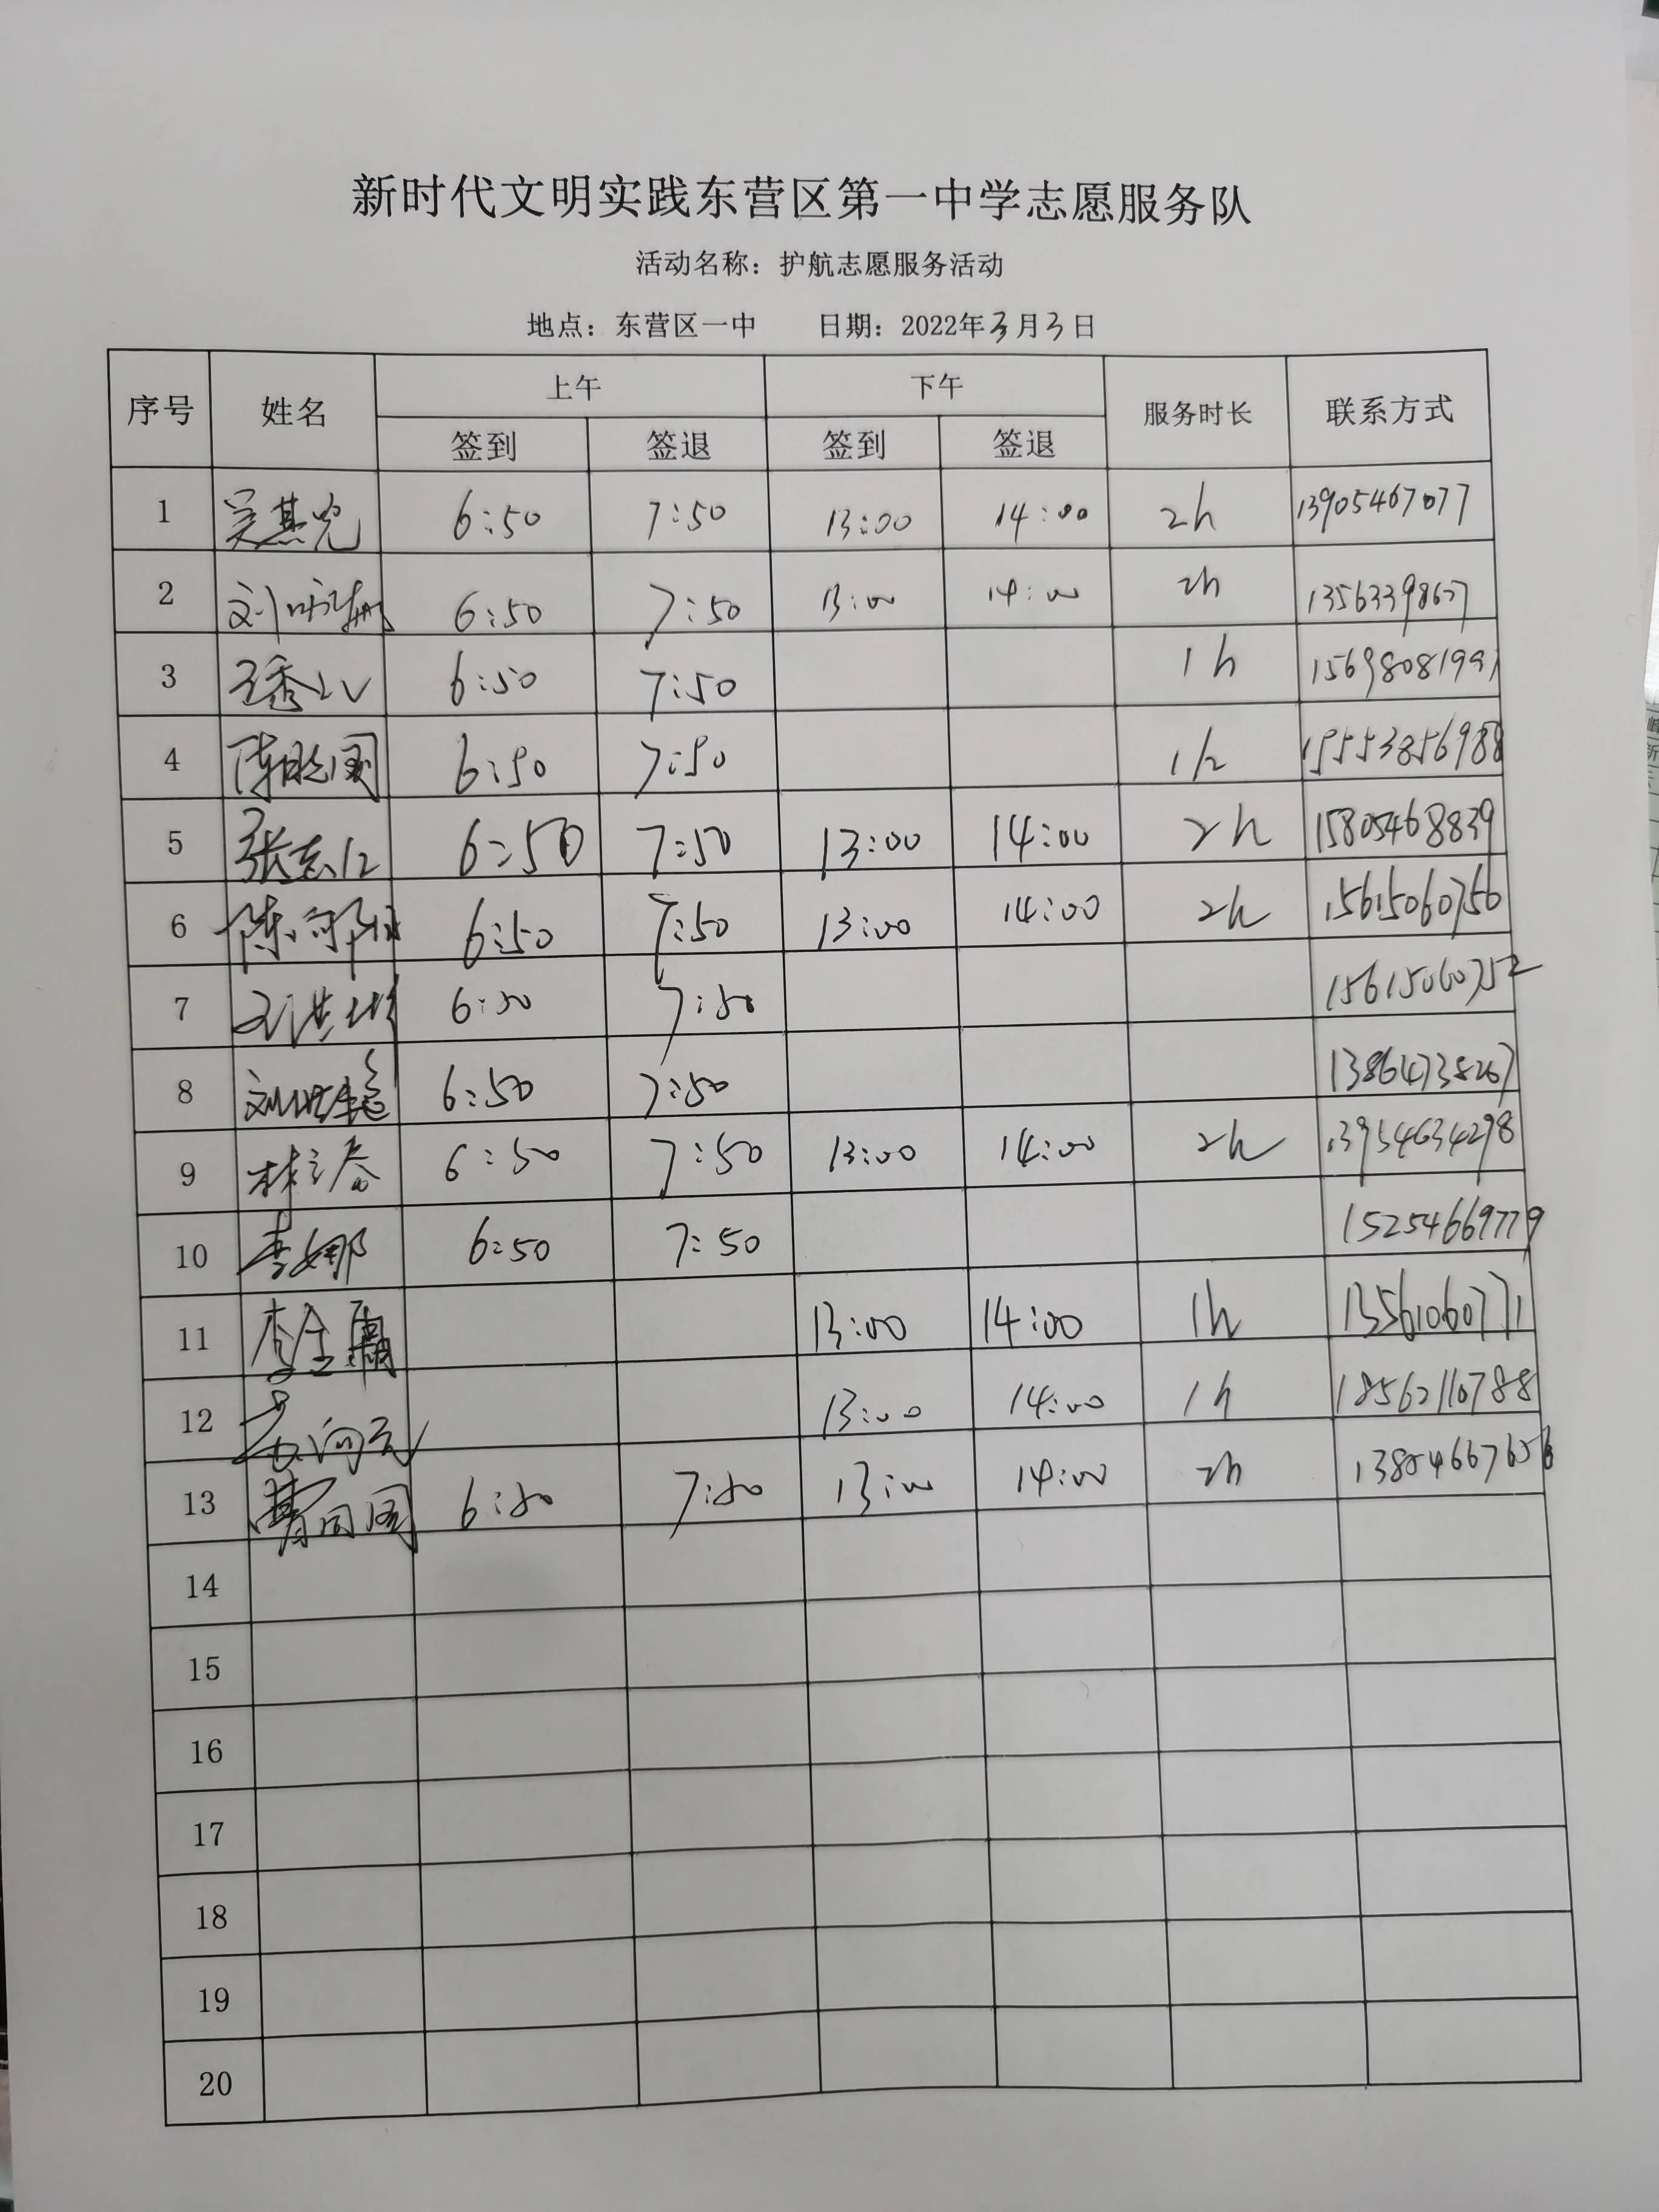 新时代文明实践东营区第一中学志愿服务队
活动名称：护航志愿服务活动
地点：东营区一中 日期：2022年3月3日
序号 姓名 上午 下午 服务时长 联系方式
签到 签退 签到 签退
1 6:50 7:50 13:00 14:00 2h 13905467077
2 6:50 7:50 13:00 14:00 2h
3 6:50 7:50 1h
4 6:50 7:50 1h 15553856988
5 6:50 7:50 13:00 14:00 2h 15805468839
6 6:50 7:50 13:00 14:00 2h 15615060756
7 6:50 7:50 15615060752
8 6:50 7:50 13864738267
9 6:50 7:50 13:00 14:00 2h 13954634298
10 李娜 6:50 7:50 15254669779
11 13:00 14:00 1h 13561060771
12 13:00 14:00 1h 18562110788
13 6:50 7:50 13:00 14:00 2h
14
15
16
17
18
19
20